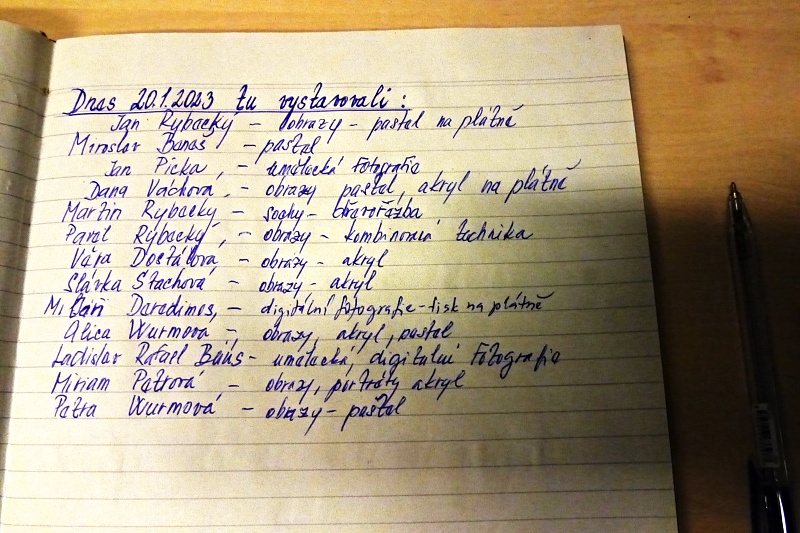 Dnes 20.1.2023 tu vystavovali :
Jan Rybacký – obrazy – pastel na plátně
Miroslav Banas – pastel
Jan Picka, – umělecká fotografie
Dana Váchová, – obrazy pastel, akryl na plátně
Martin Rybacký – sochy –
Pavel Rybacký, – obrazy – kombinovaná technika
Věra Dostálová – obrazy – akryl
Slávka Stachová – obrazy – akryl
Daredimos, – digitální fotografie – tisk na plátně
Alica Wurmová – obrazy, akryl, pastel
Ladislav Rafael Bánis – umělecká, digitální fotografie
Miriam Petrová – obrazy, portréty akryl
Petra Wurmová – obrazy – pastel